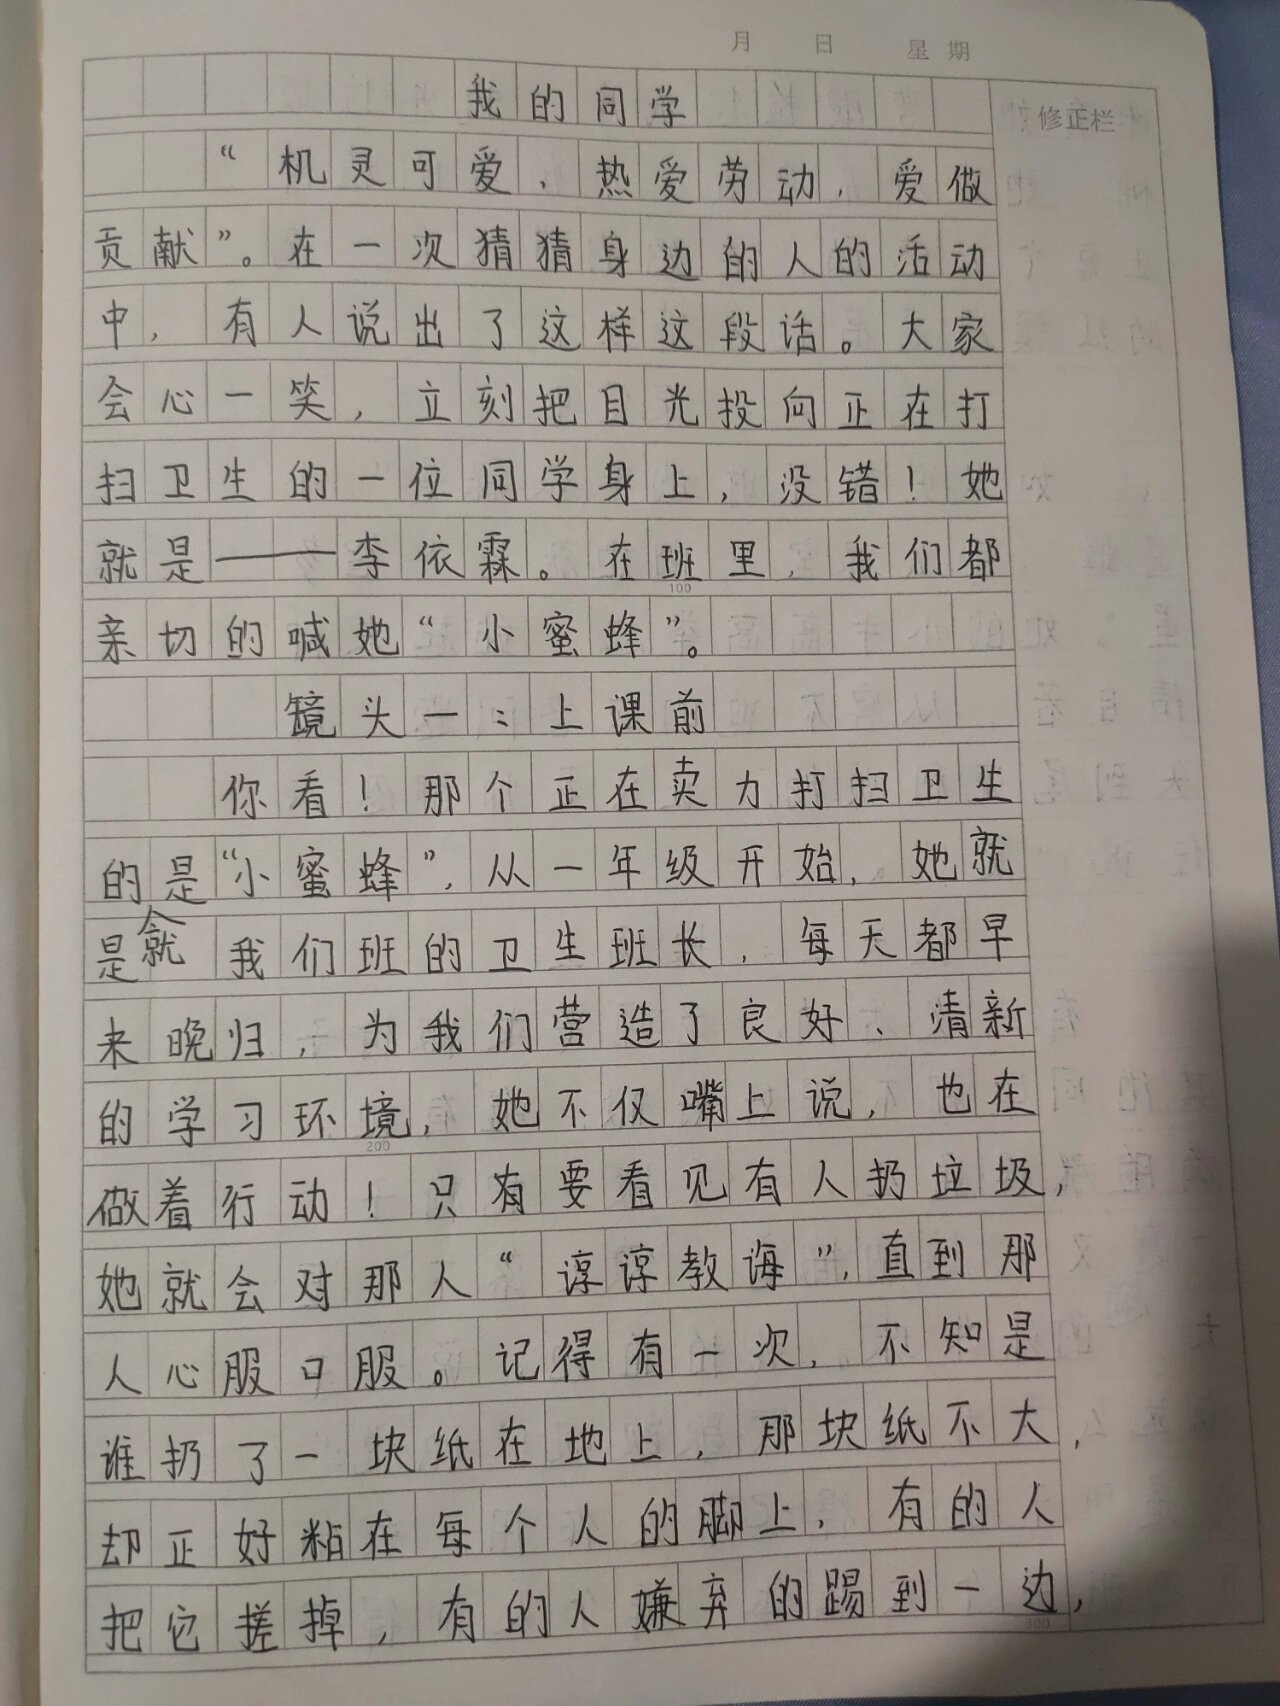 月 日 星期
我的同学
修正栏
“机灵可爱，热爱劳动，爱做
贡献”。在一次猜猜身边的人的活动
中，有人说出了这样这段话。大家
会心一笑，立刻把目光投向正在打
扫卫生的一位同学身上，没错！她
就是——李依霖。在班里，我们都
100
亲切的喊她“小蜜蜂”。
镜头一：上课前
你看！那个正在卖力打扫卫生
的是“小蜜蜂”，从一年级开始，她就
是就我们班的卫生班长，每天都早
来晚归，为我们营造了良好、清新
的学习环境，她不仅嘴上说，也在
200
做着行动！只有要看见有人扔垃圾，
她就会对那人“谆谆教诲”，直到那
人心服口服。记得有一次，不知是
谁扔了一块纸在地上，那块纸不大，
却正好粘在每个人的脚上，有的人
把它搓掉，有的人嫌弃的踢到一边，
300